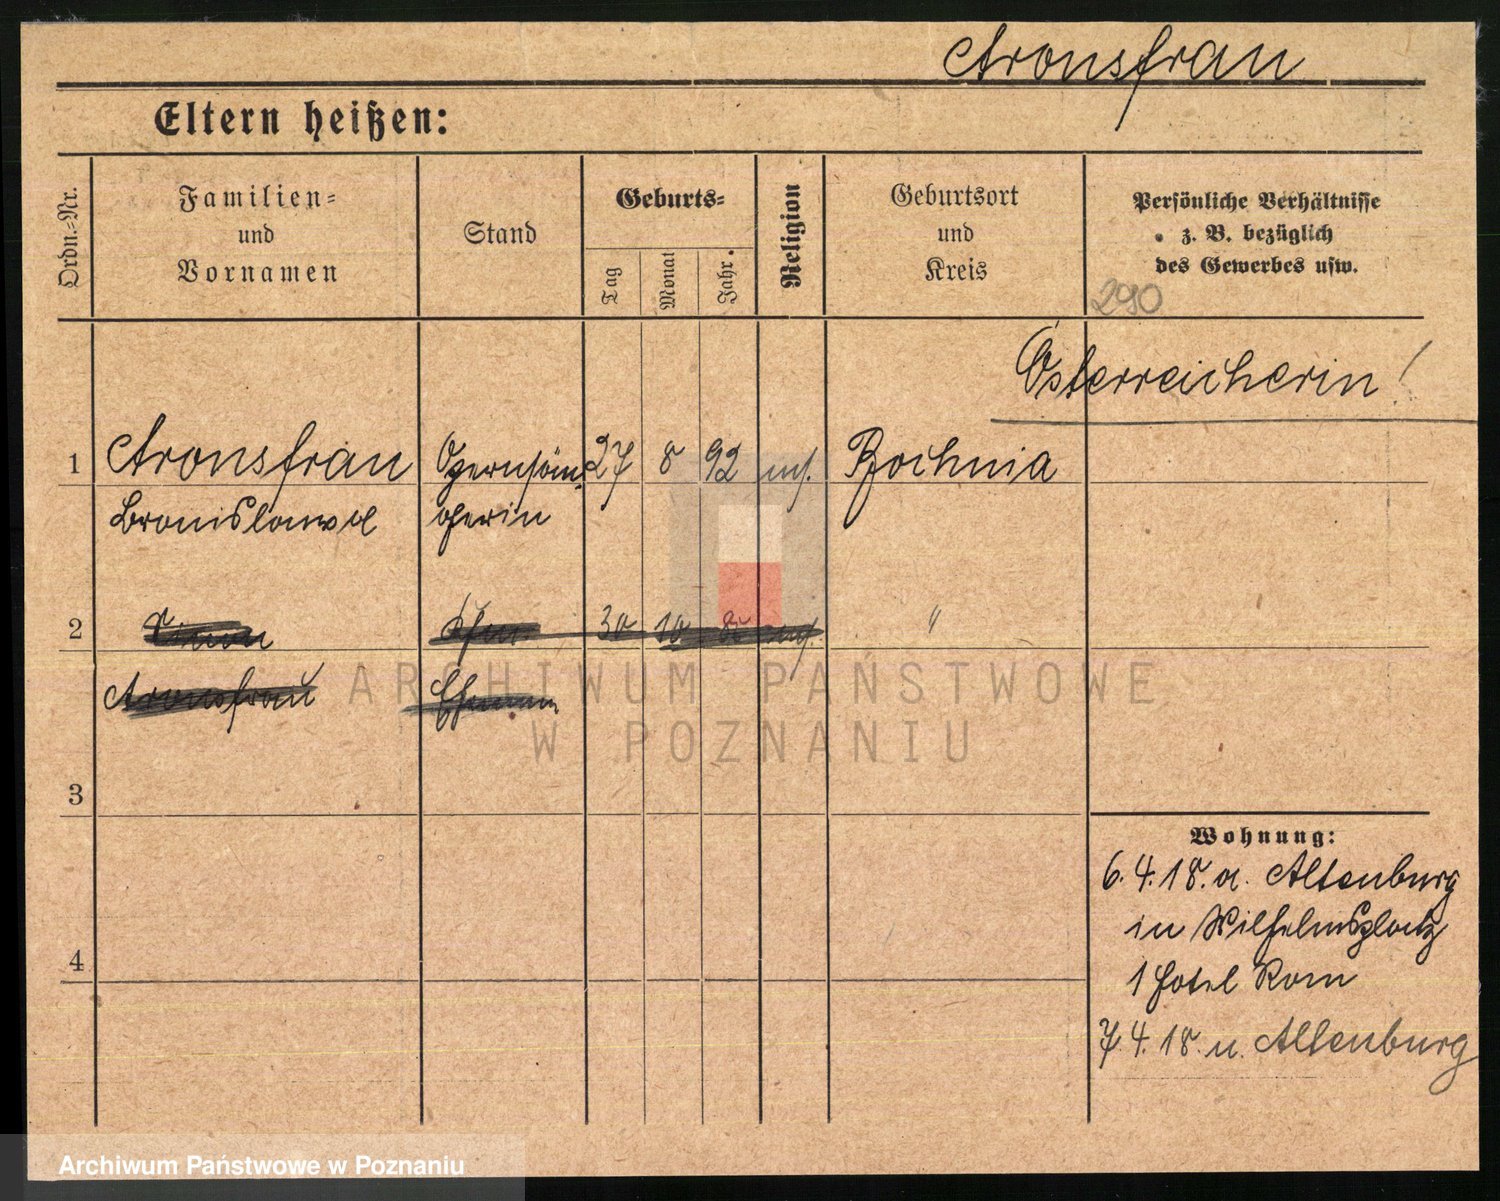 Aronsfrau
Eltern heißen:
Ordn.-Nr.
Familien-
und
Vornamen
Stand
Geburts-
Tag
Monat
Jahr.
Religion
Geburtsort
und
Kreis
Persönliche Verhältnisse
z. B. bezüglich
des Gewerbes usw.
290
Österreicherin!
1 Aronsfrau Opernsän- 27 8 92 mos. Bochnia
Bronislawa gerin
2 Simon 30 10 "
Aronsfrau Ehemann
3
4
Wohnung:
6.4.18. a. Altenburg
in Wilhelmsplatz
1 Hotel Rom
7.4.18. n. Altenburg
ARCHIWUM PAŃSTWOWE
W POZNANIU
Archiwum Państwowe w Poznaniu